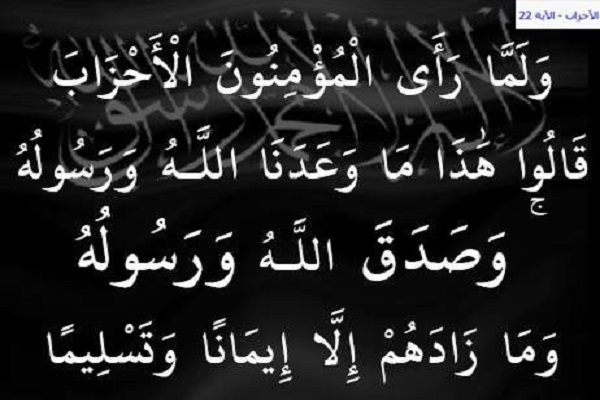 الأحزاب - الآية 22
وَلَمَّا رَأَى الْمُؤْمِنُونَ الْأَحْزَابَ
قَالُوا هَٰذَا مَا وَعَدَنَا اللَّـهُ وَرَسُولُهُ
وَصَدَقَ اللَّـهُ وَرَسُولُهُ ۚ
وَمَا زَادَهُمْ إِلَّا إِيمَانًا وَتَسْلِيمًا